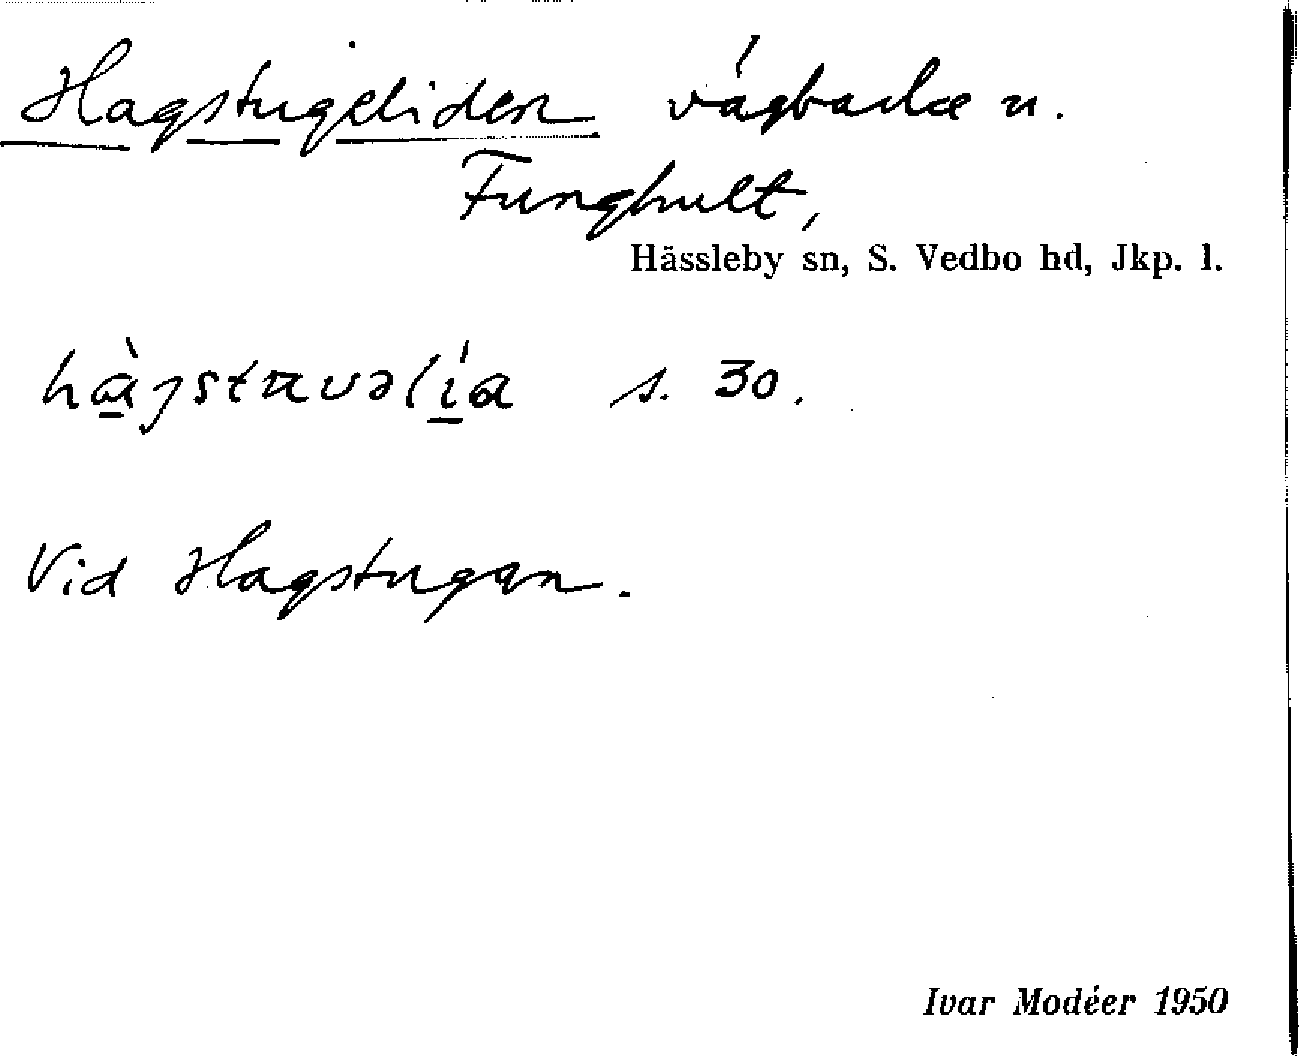 Hagstugeliden vägbacke n.
Funghult,
Hässleby sn, S. Vedbo hd, Jkp. l.
s. 30.
Vid Hagstugan.
Ivar Modéer 1950